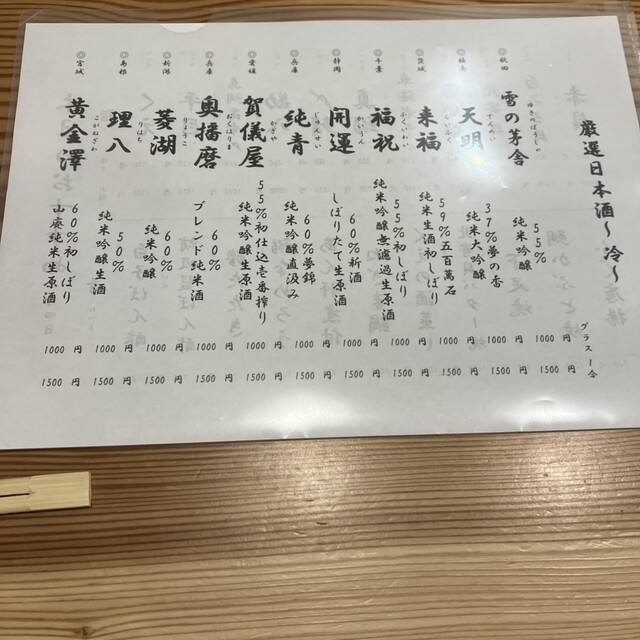 厳選日本酒〜冷〜
グラス
一合
秋田
雪の茅舎
ゆきのぼうしゃ
55%
純米吟醸
1000円
1500円
福島
天明
てんめい
37%夢の香
純米大吟醸
1000円
1500円
茨城
来福
らいふく
59%五百萬石
純米生酒初しぼり
1000円
1500円
千葉
福祝
ふくいわい
55%初しぼり
純米吟醸無濾過生原酒
1000円
1500円
静岡
開運
かいうん
60%新酒
しぼりたて生原酒
1000円
1500円
兵庫
純青
じゅんせい
60%夢錦
純米吟醸直汲み
1000円
1500円
愛媛
賀儀屋
かぎや
55%初仕込壱番搾り
純米吟醸生原酒
1000円
1500円
兵庫
奥播磨
おくはりま
60%
ブレンド純米酒
1000円
1500円
新潟
菱湖
りょうこ
60%
純米吟醸
1000円
1500円
島根
理八
りはち
50%
純米吟醸生酒
1000円
1500円
宮城
黄金澤
こがねざわ
60%初しぼり
山廃純米生原酒
1000円
1500円